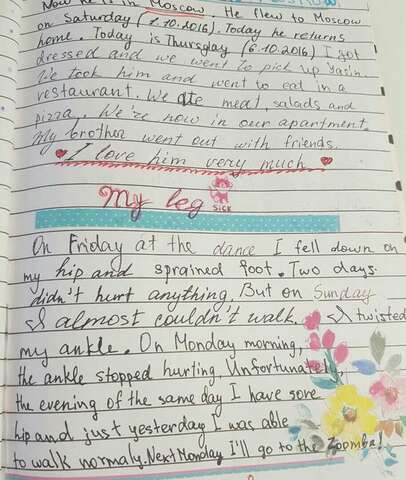 Now he is in Moscow. He flew to Moscow
on Saturday (1.10.2016). Today he returns
home. Today is Thursday (6.10.2016) I got
dressed and we went to pick up Yasin.
We took him and went to eat in a
restaurant. We ate meat, salads and
pizza. We're now in our apartment.
My brother went out with friends.
I love him very much
My leg
SICK
On Friday at the dance I fell down on
my hip and sprained foot. Two days
didn't hurt anything. But on Sunday
I almost couldn't walk. I twisted
my ankle. On Monday morning,
the ankle stopped hurting. Unfortunately,
the evening of the same day I have sore
hip and just yesterday I was able
to walk normaly. Next Monday I'll go to the Zoomba!